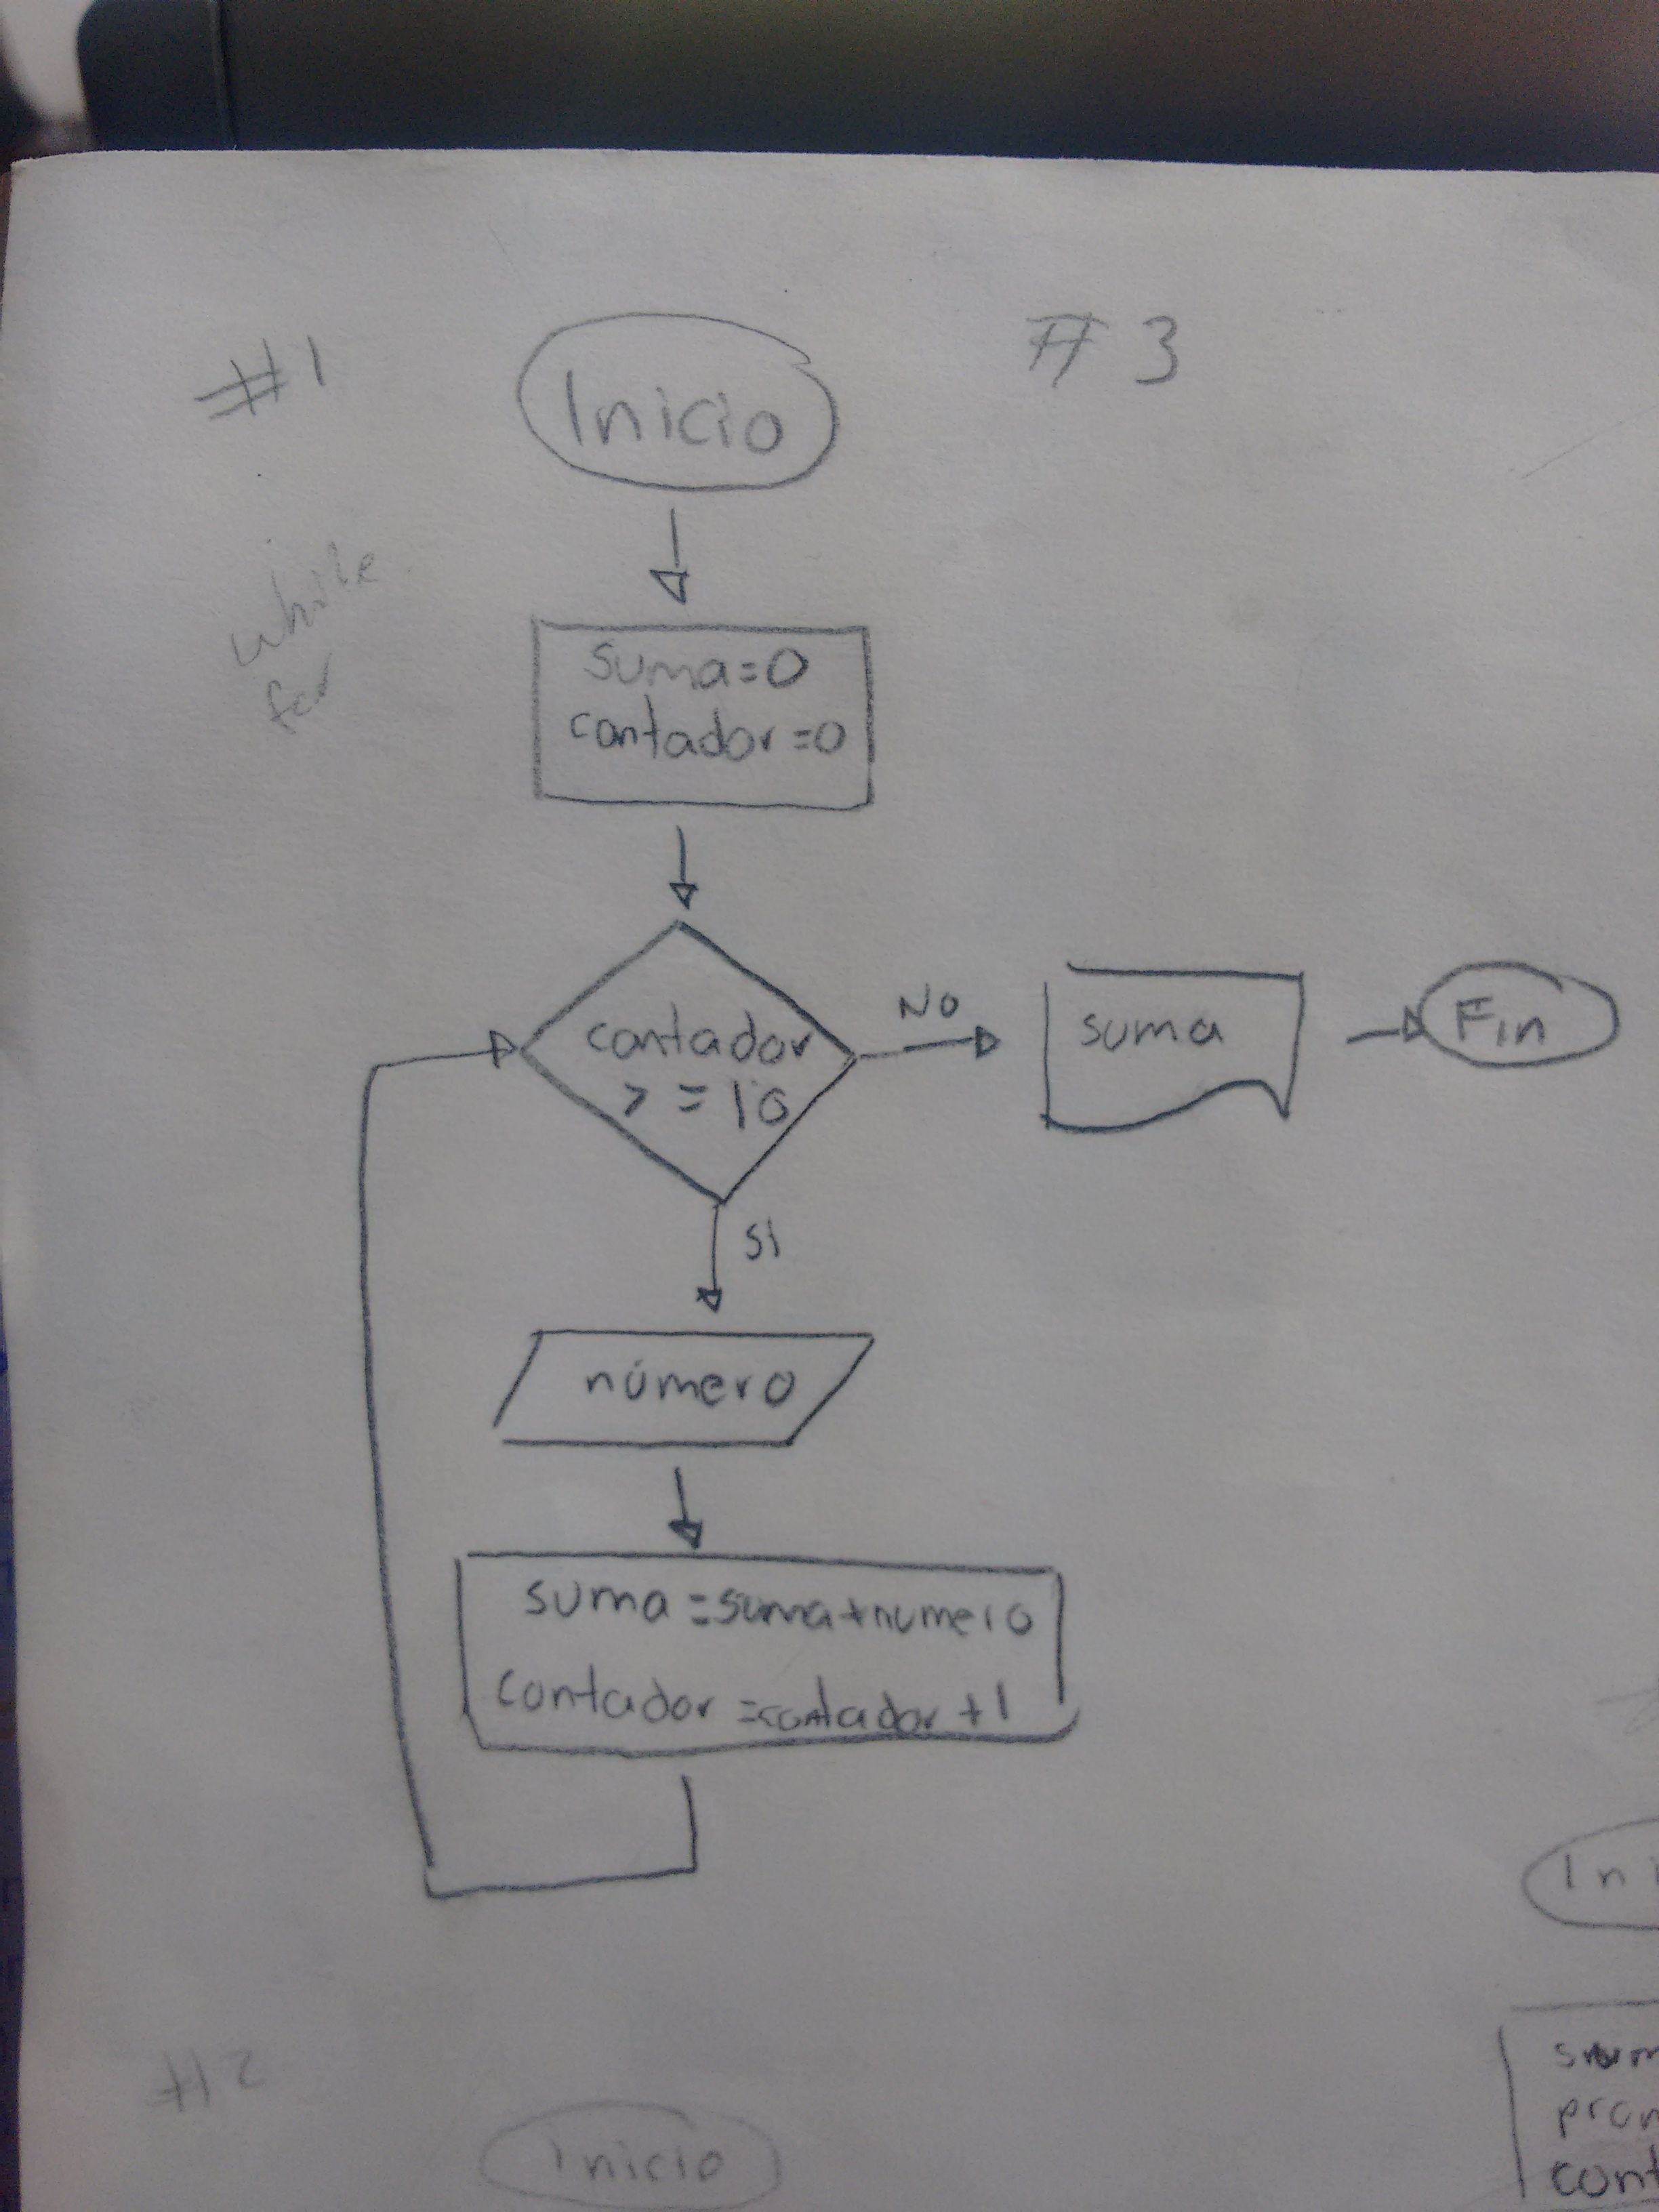 #1
#3
Inicio
While
for
suma=0
contador=0
contador
>=10
No
suma
Fin
Si
número
suma=suma+numero
contador=contador+1
#2
Inicio